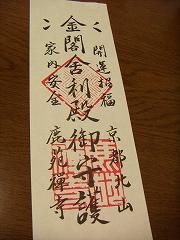 開運招福
金閣舎利殿御守護
家内安全
京都北山
鹿苑禅寺